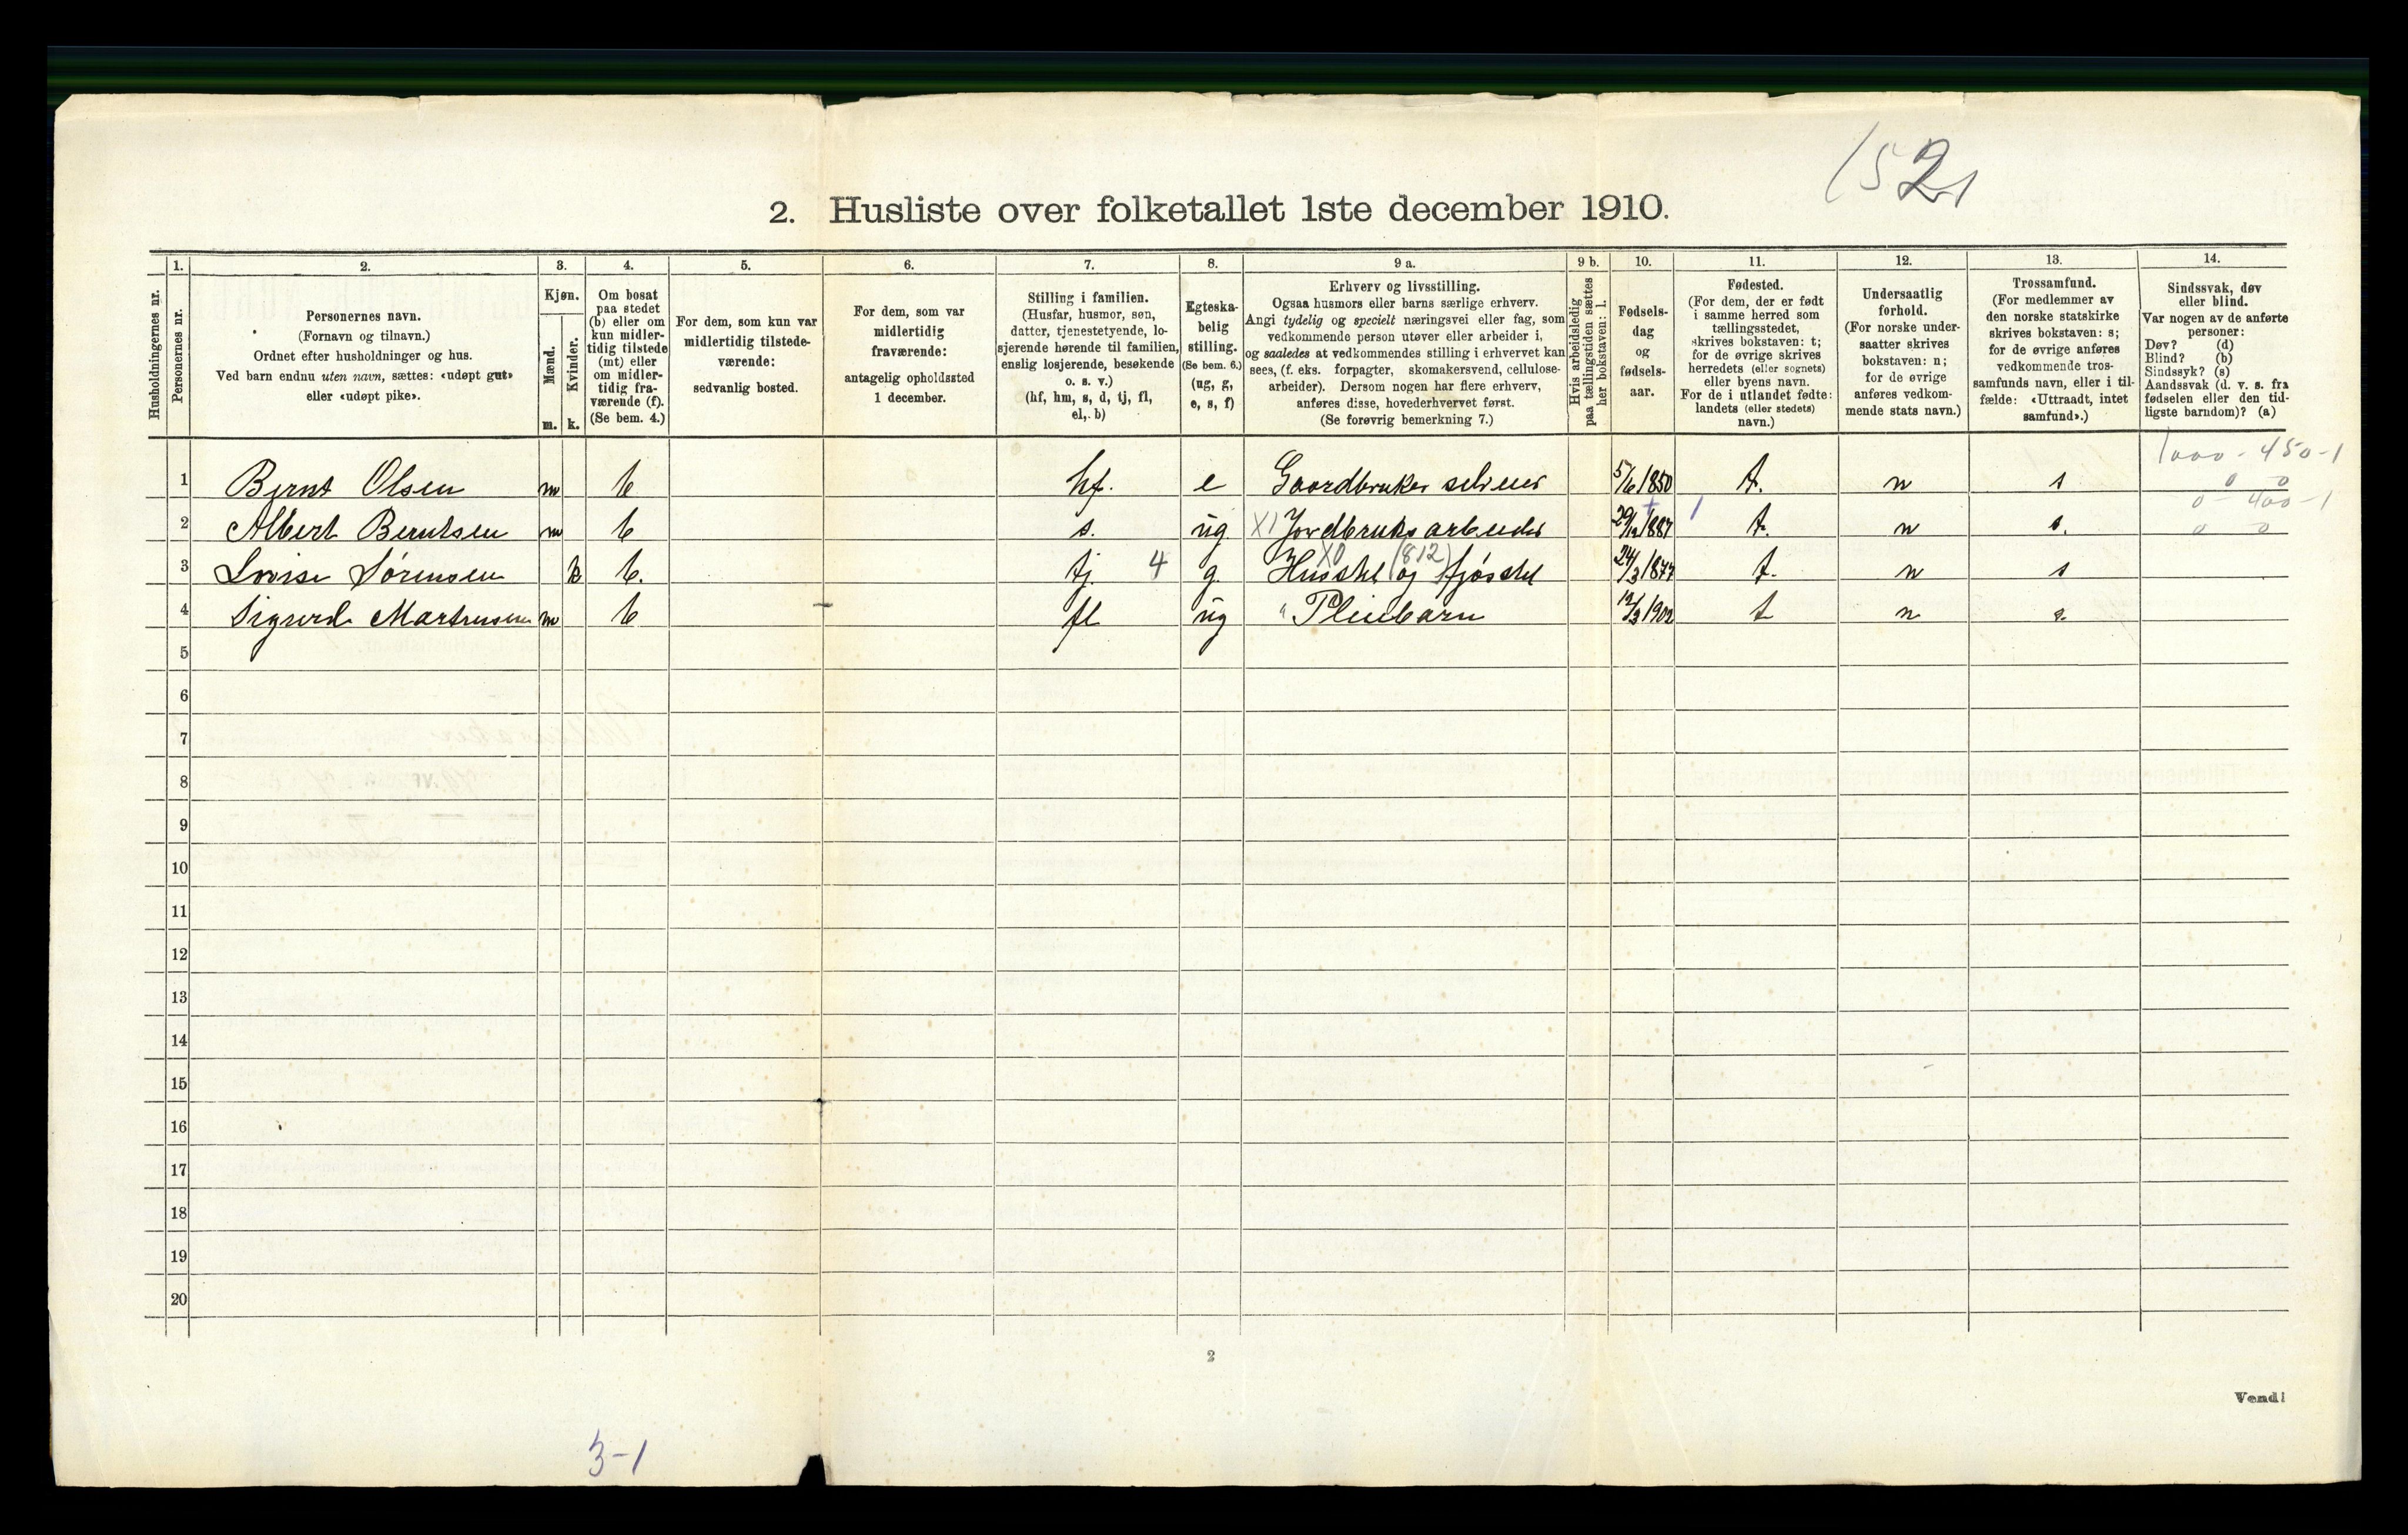 152
2. Husliste over folketallet 1ste december 1910.
Husholdningernes nr.
1. Personernes nr.
2. Personernes navn.
(Fornavn og tilnavn.)
Ordnet efter husholdninger og hus.
Ved barn endnu uten navn, sættes: «udøpt gut»
eller «udøpt pike».
3. Kjøn.
Mænd. m.
Kvinder. k.
4. Om bosat
paa stedet
(b) eller om
kun midler-
tidig tilstede
(mt) eller
om midler-
tidig fra-
værende (f).
(Se bem. 4.)
5. For dem, som kun var
midlertidig tilstede-
værende:
sedvanlig bosted.
6. For dem, som var
midlertidig
fraværende:
antagelig opholdssted
1 december.
7. Stilling i familien.
(Husfar, husmor, søn,
datter, tjenestetyende, lo-
sjerende hørende til familien,
enslig losjerende, besøkende
o. s. v.)
(hf, hm, s, d, tj, fl,
el, b)
8. Egteska-
belig
stilling.
(Se bem. 6.)
(ug, g,
e, s, f)
9 a. Erhverv og livsstilling.
Ogsaa husmors eller barns særlige erhverv.
Angi tydelig og specielt næringsvei eller fag, som
vedkommende person utøver eller arbeider i,
og saaledes at vedkommendes stilling i erhvervet kan
sees, (f. eks. forpagter, skomakersvend, cellulose-
arbeider). Dersom nogen har flere erhverv,
anføres disse, hovederhvervet først.
(Se forøvrig bemerkning 7.)
9 b. Hvis arbeidsledig
paa tællingstiden sættes
her bokstaven: l.
10. Fødsels-
dag
og
fødsels-
aar.
11. Fødested.
(For dem, der er født
i samme herred som
tællingsstedet,
skrives bokstaven: t;
for de øvrige skrives
herredets (eller sognets)
eller byens navn.
For de i utlandet fødte:
landets (eller stedets)
navn.)
12. Undersaatlig
forhold.
(For norske under-
saatter skrives
bokstaven: n;
for de øvrige
anføres vedkom-
mende stats navn.)
13. Trossamfund.
(For medlemmer av
den norske statskirke
skrives bokstaven: s;
for de øvrige anføres
vedkommende tros-
samfunds navn, eller i til-
fælde: «Uttraadt, intet
samfund».)
14. Sindssvak, døv
eller blind.
Var nogen av de anførte
personer:
Døv? (d)
Blind? (b)
Sindssyk? (s)
Aandssvak (d. v. s. fra
fødselen eller den tid-
ligste barndom)? (a)
1000 - 450-1
1 Bernt Olsen m b hf. e Gaardbruker selveier 5/6 1850 t. n s 0 0
0 - 400-1
2 Albert Berntsen m b s. ug X1 Jordbruksarbeider 29/12 1887 1 t. n s. 0 0
X0 (812)
3 Lovise Sørensen k b. tj. 4 g. Husstel og fjøsstel 24/3 1877 t. n s
4 Sigurd Martinsen m b fl ug " Pleiebarn 12/3 1902 t n s.
5
6
7
8
9
10
11
12
13
14
15
16
17
18
19
20
2
Vend!
3-1